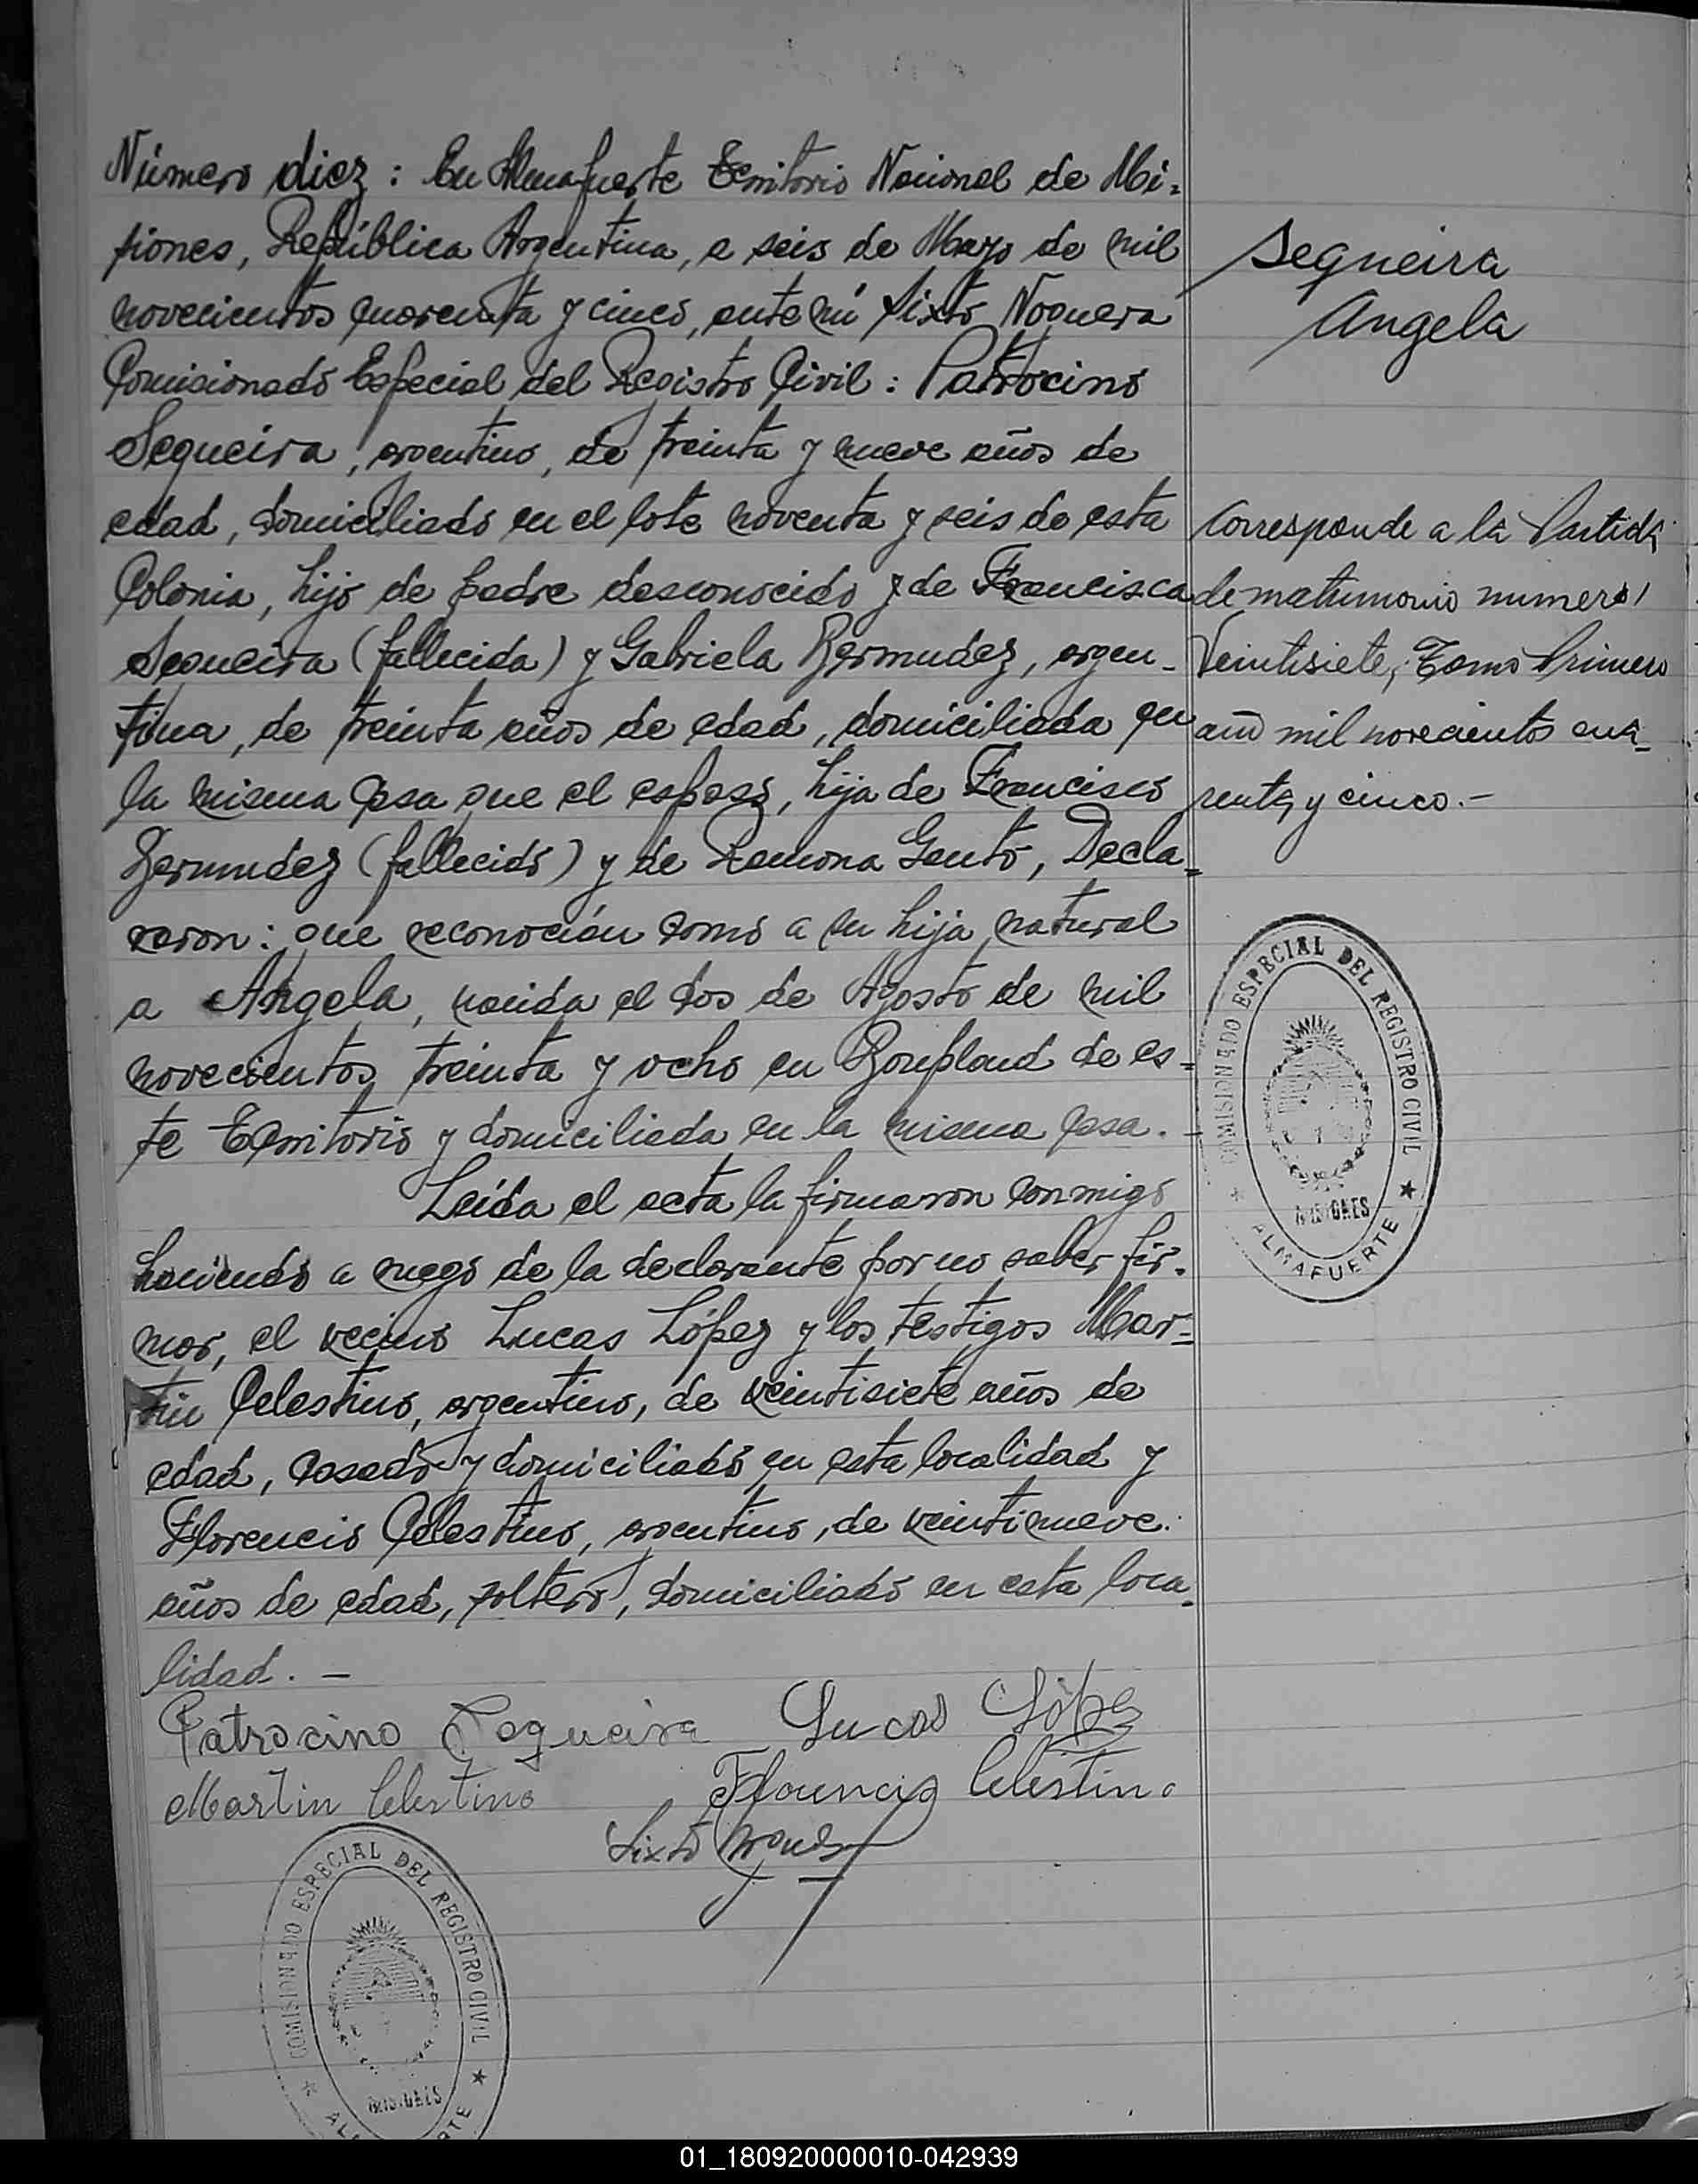 Número diez: En Almafuerte Territorio Nacional de Mi=
siones, República Argentina, a seis de Mayo de mil
novecientos cuarenta y cinco, ante mí Sixto Noguera
Comisionado Especial del Registro Civil: Patrocino
Sequeira, argentino, de treinta y nueve años de
edad, domiciliado en el lote noventa y seis de esta
Colonia, hijo de padre desconocido y de Francisca
Sequeira (fallecida) y Gabriela Bermudez, argen-
tina, de treinta años de edad, domiciliada en
la misma casa que el esposo, hija de Francisco
Bermudez (fallecido) y de Ramona Gento, Decla=
raron: que reconocían como a su hija natural
a Angela, nacida el dos de Agosto de mil
novecientos treinta y ocho en Bonpland de es=
te Territorio y domiciliada en la misma casa.-
Leída el acta la firmaron conmigo
haciendo a ruego de la declarante por no saber fir-
mar, el vecino Lucas López y los testigos Mar=
tin Celestino, argentino, de veintisiete años de
edad, casado y domiciliado en esta localidad y
Florencio Celestino, argentino, de veintinueve
años de edad, soltero, domiciliado en esta loca-
lidad. -
Patrocino Sequeira Lucas López
Martin Celestino Florencio Celestino
Sixto
COMISIONADO ESPECIAL DEL REGISTRO CIVIL
MISIONES
Sequeira
Angela
Corresponde a la Partida
de matrimonio numero
Veintisiete, Tomo Primero
año mil novecientos cua-
renta y cinco.-
COMISIONADO ESPECIAL DEL REGISTRO CIVIL
MISIONES
ALMAFUERTE
01_180920000010-042939